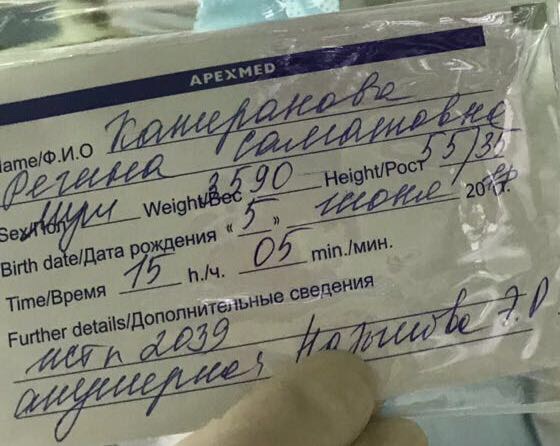 APEXMED
Name/Ф.И.О Катиранова
Регина Саматовна
Sex/Пол Weight/Вес 3590 Height/Рост 55/35
Birth date/Дата рождения « 5 » июня 2017г.
Time/Время 15 h./ч. 05 min./мин.
Further details/Дополнительные сведения
ист п 2039
акушерка